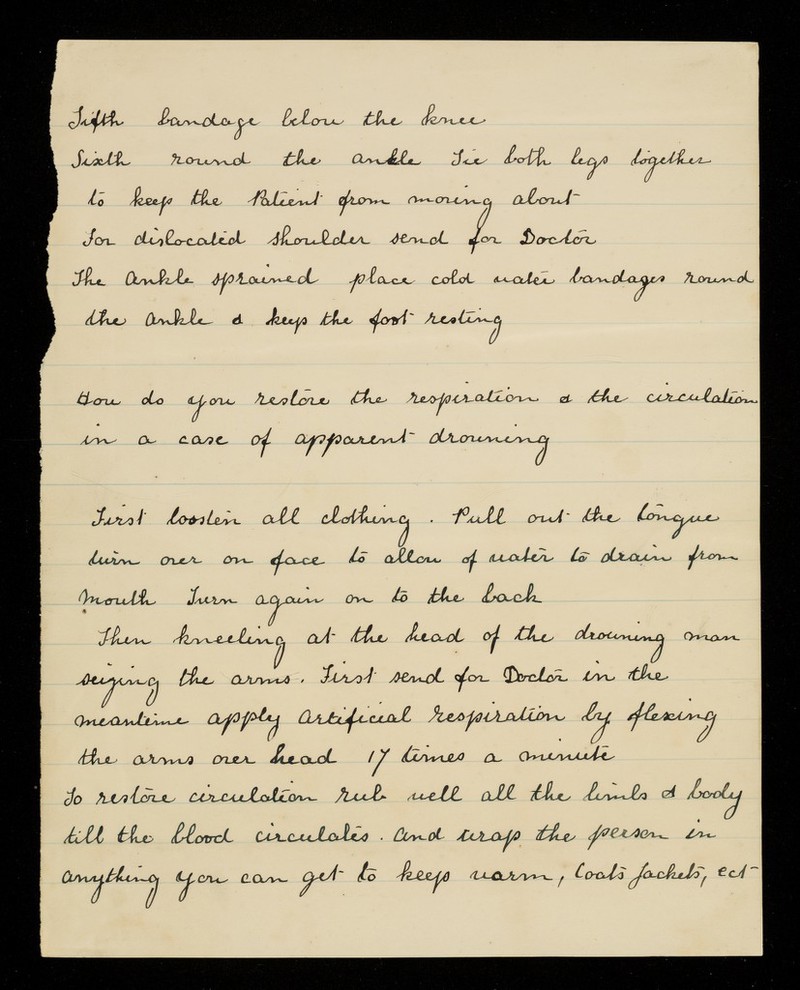 Fifth bandage below the knee
Sixth round the ankle Tie both legs together
to keep the Patient from moving about
For dislocated shoulder send for Doctor
The Ankle sprained place cold water bandages round
the Ankle & keep the foot resting
How do you restore the respiration & the circulation
in a case of apparent drowning
First loosten all clothing. Pull out the tongue
turn over on face to allow of water to drain from
Mouth Turn again on to the back
Then kneeling at the head of the drowning man
seizing the arms. First send for Doctor in the
meantime apply Artificial respiration by flexing
the arms over head 17 times a minute
To restore circulation rub well all the limbs & body
till the blood circulates. And wrap the person in
anything you can get to keep warm, Coats Jackets, ect